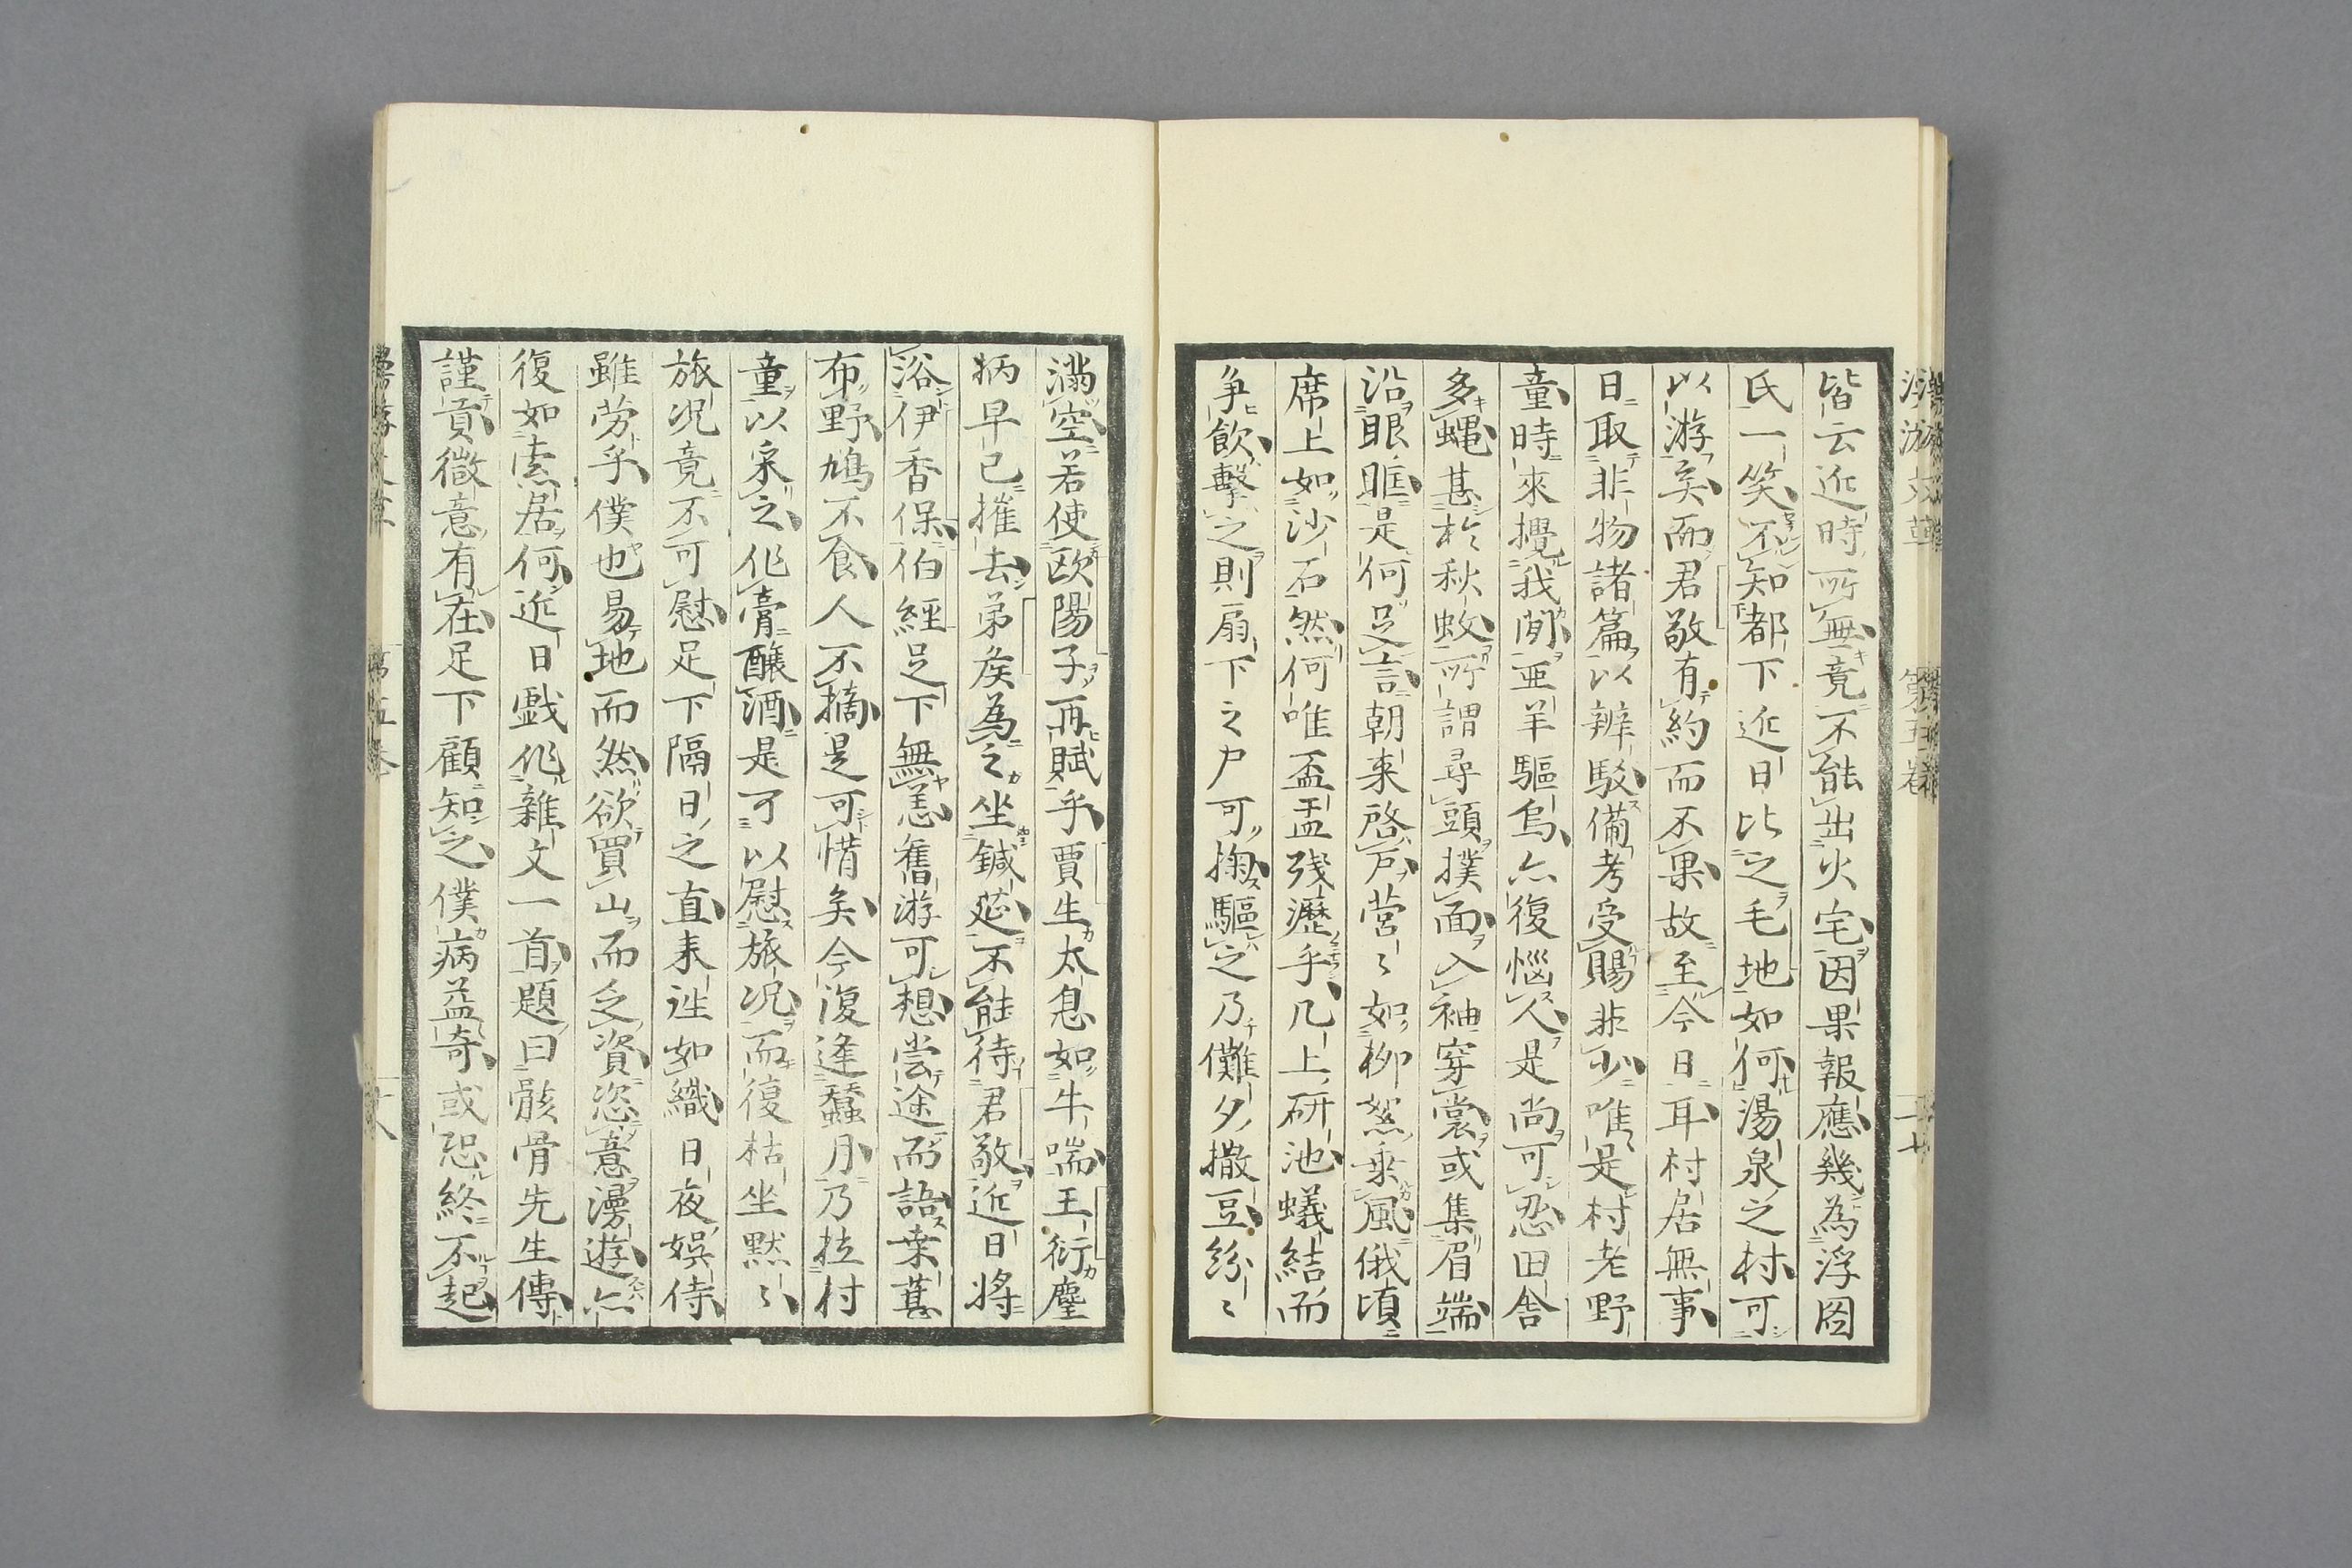 皆云近時所無竟不能出火宅因果報應幾為浮囹
氏一笑不知都下近日比之毛地如何湯泉之村可
以游矣而君敬有約而不果故至今日耳村居無事
日取非物諸篇以辨駁備考受賜非少唯是村老野
童時來攪我閒亜羊驅烏亦復惱人是尚可忍田舎
多蠅甚於秋蚊所謂尋頭撲面入袖穿裳或集眉端
沿眼眶是何足言朝来啓戸営〻如柳絮乗風俄頃
席上如沙石然何唯盃盂残瀝乎几上研池蟻結而
争飲擊之則扇下之尸可掬驅之乃儺夕撒豆紛〻
満空若使欧陽子再賦乎賈生太息如牛喘王衍麈
柄早已摧去弟矦為之坐鍼莚不能待君敬近日將
浴伊香保伯經足下無恙舊游可想嘗途而語桒葚
布野鳩不食人不摘是可惜矣今復逢蠶月乃拉村
童以采之作膏醸酒是可以慰旅况而復枯坐黙〻
旅况竟不可慰足下隔日之直来徃如織日夜娯侍
雖劳乎僕也易地而然欲買山而乏資恣意漫遊亦
復如索居何近日戯作雜文一首題曰骸骨先生傳
謹貢徴意有在足下顧知之僕病益奇或恐終不起